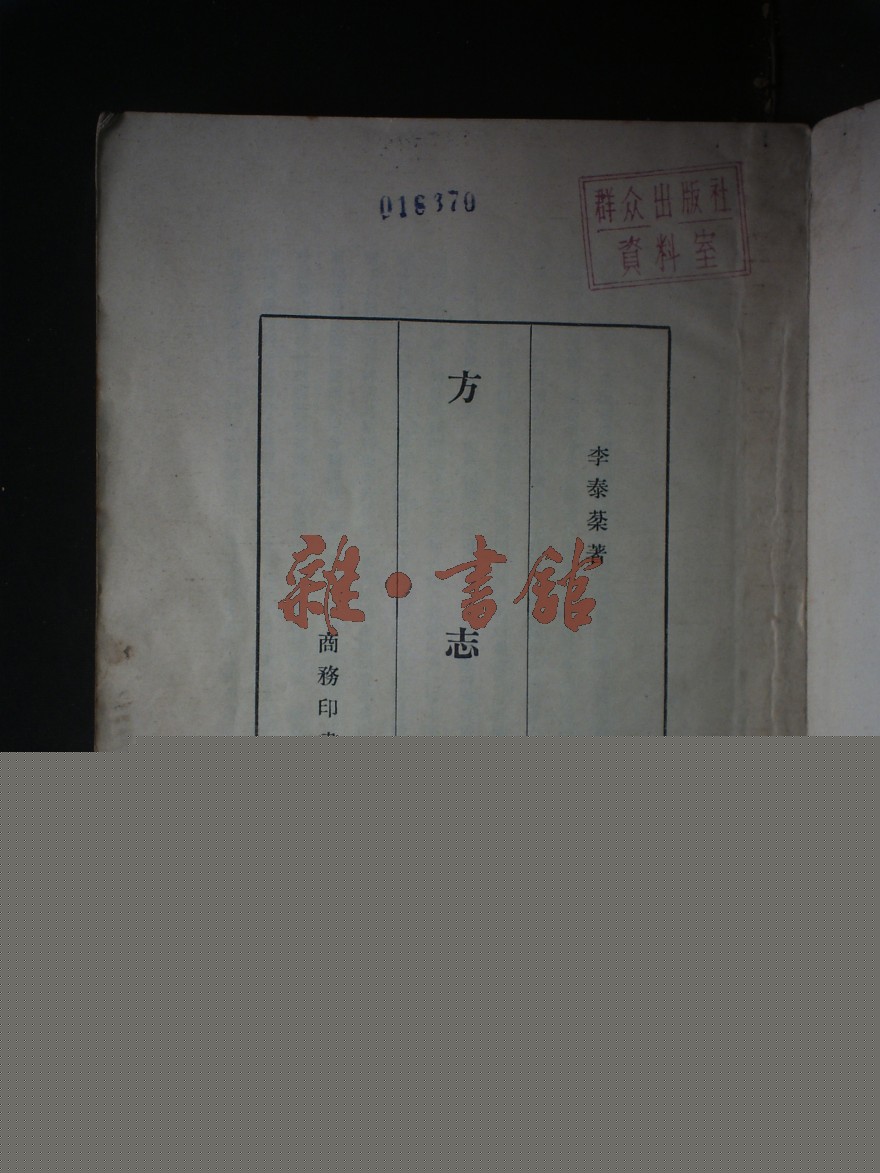 018370
群众出版社
資料室
李泰棻著
方志
商務印
雜·書館